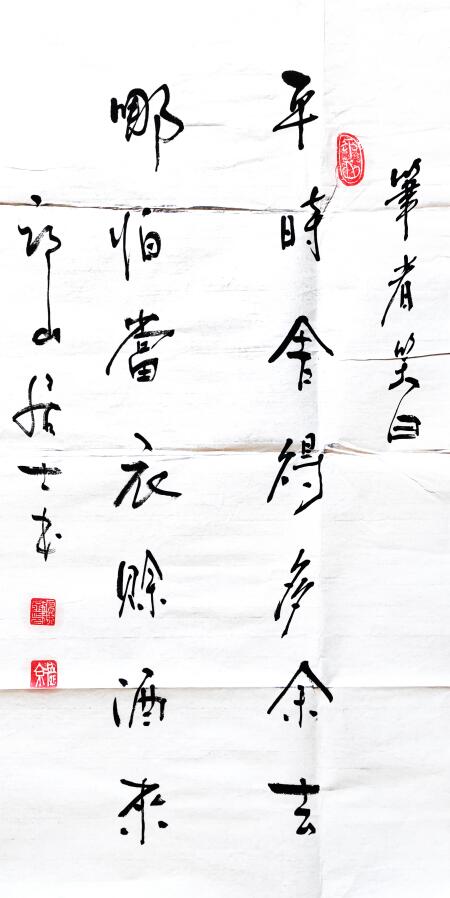 筆者笑曰
平時舍得多余去
哪怕當衣賒酒來
山居士书